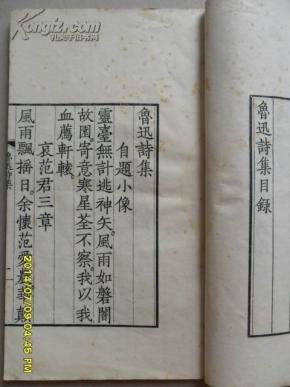 魯迅詩集目録
魯迅詩集
自題小像
靈臺無計逃神矢。風雨如磐闇
故園寄意寒星荃不察。我以我
血薦軒轅。
哀范君三章
風雨飄摇日。余懷范
2014/07/09